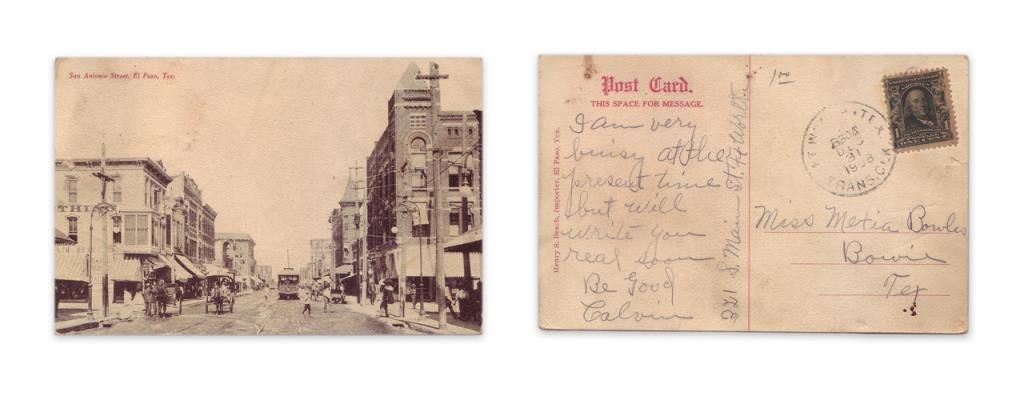 San Antonio Street, El Paso, Tex.
Post Card.
THIS SPACE FOR MESSAGE.
I am very
buisy at the
present time
but will
write you
real soon
Be Good
Calvin
221 S. Main St. Ft Worth
Henry S. Beach, Importer, El Paso, Tex.
1 00
TEX
DEC
31
1908
TRANS. CLK
Miss Metia Bowles
Bowie
Tex